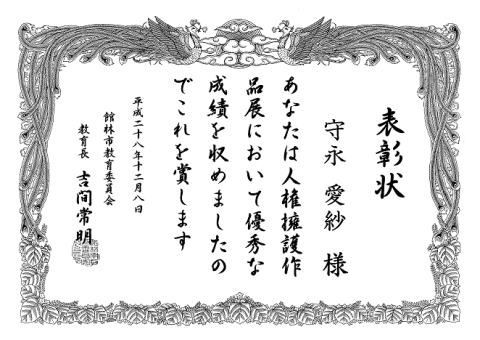 表彰状
守永 愛紗 様
あなたは人権擁護作
品展において優秀な
成績を収めましたの
でこれを賞します
平成二十八年十二月八日
館林市教育委員会
教育長 吉間常明